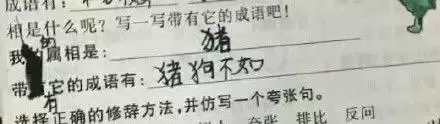 成语有：
相是什么呢？写一写带有它的成语吧！
我的属相是：猪
带有它的成语有：猪狗不如
选择正确的修辞方法，并仿写一个夸张句。
夸张 排比 反问